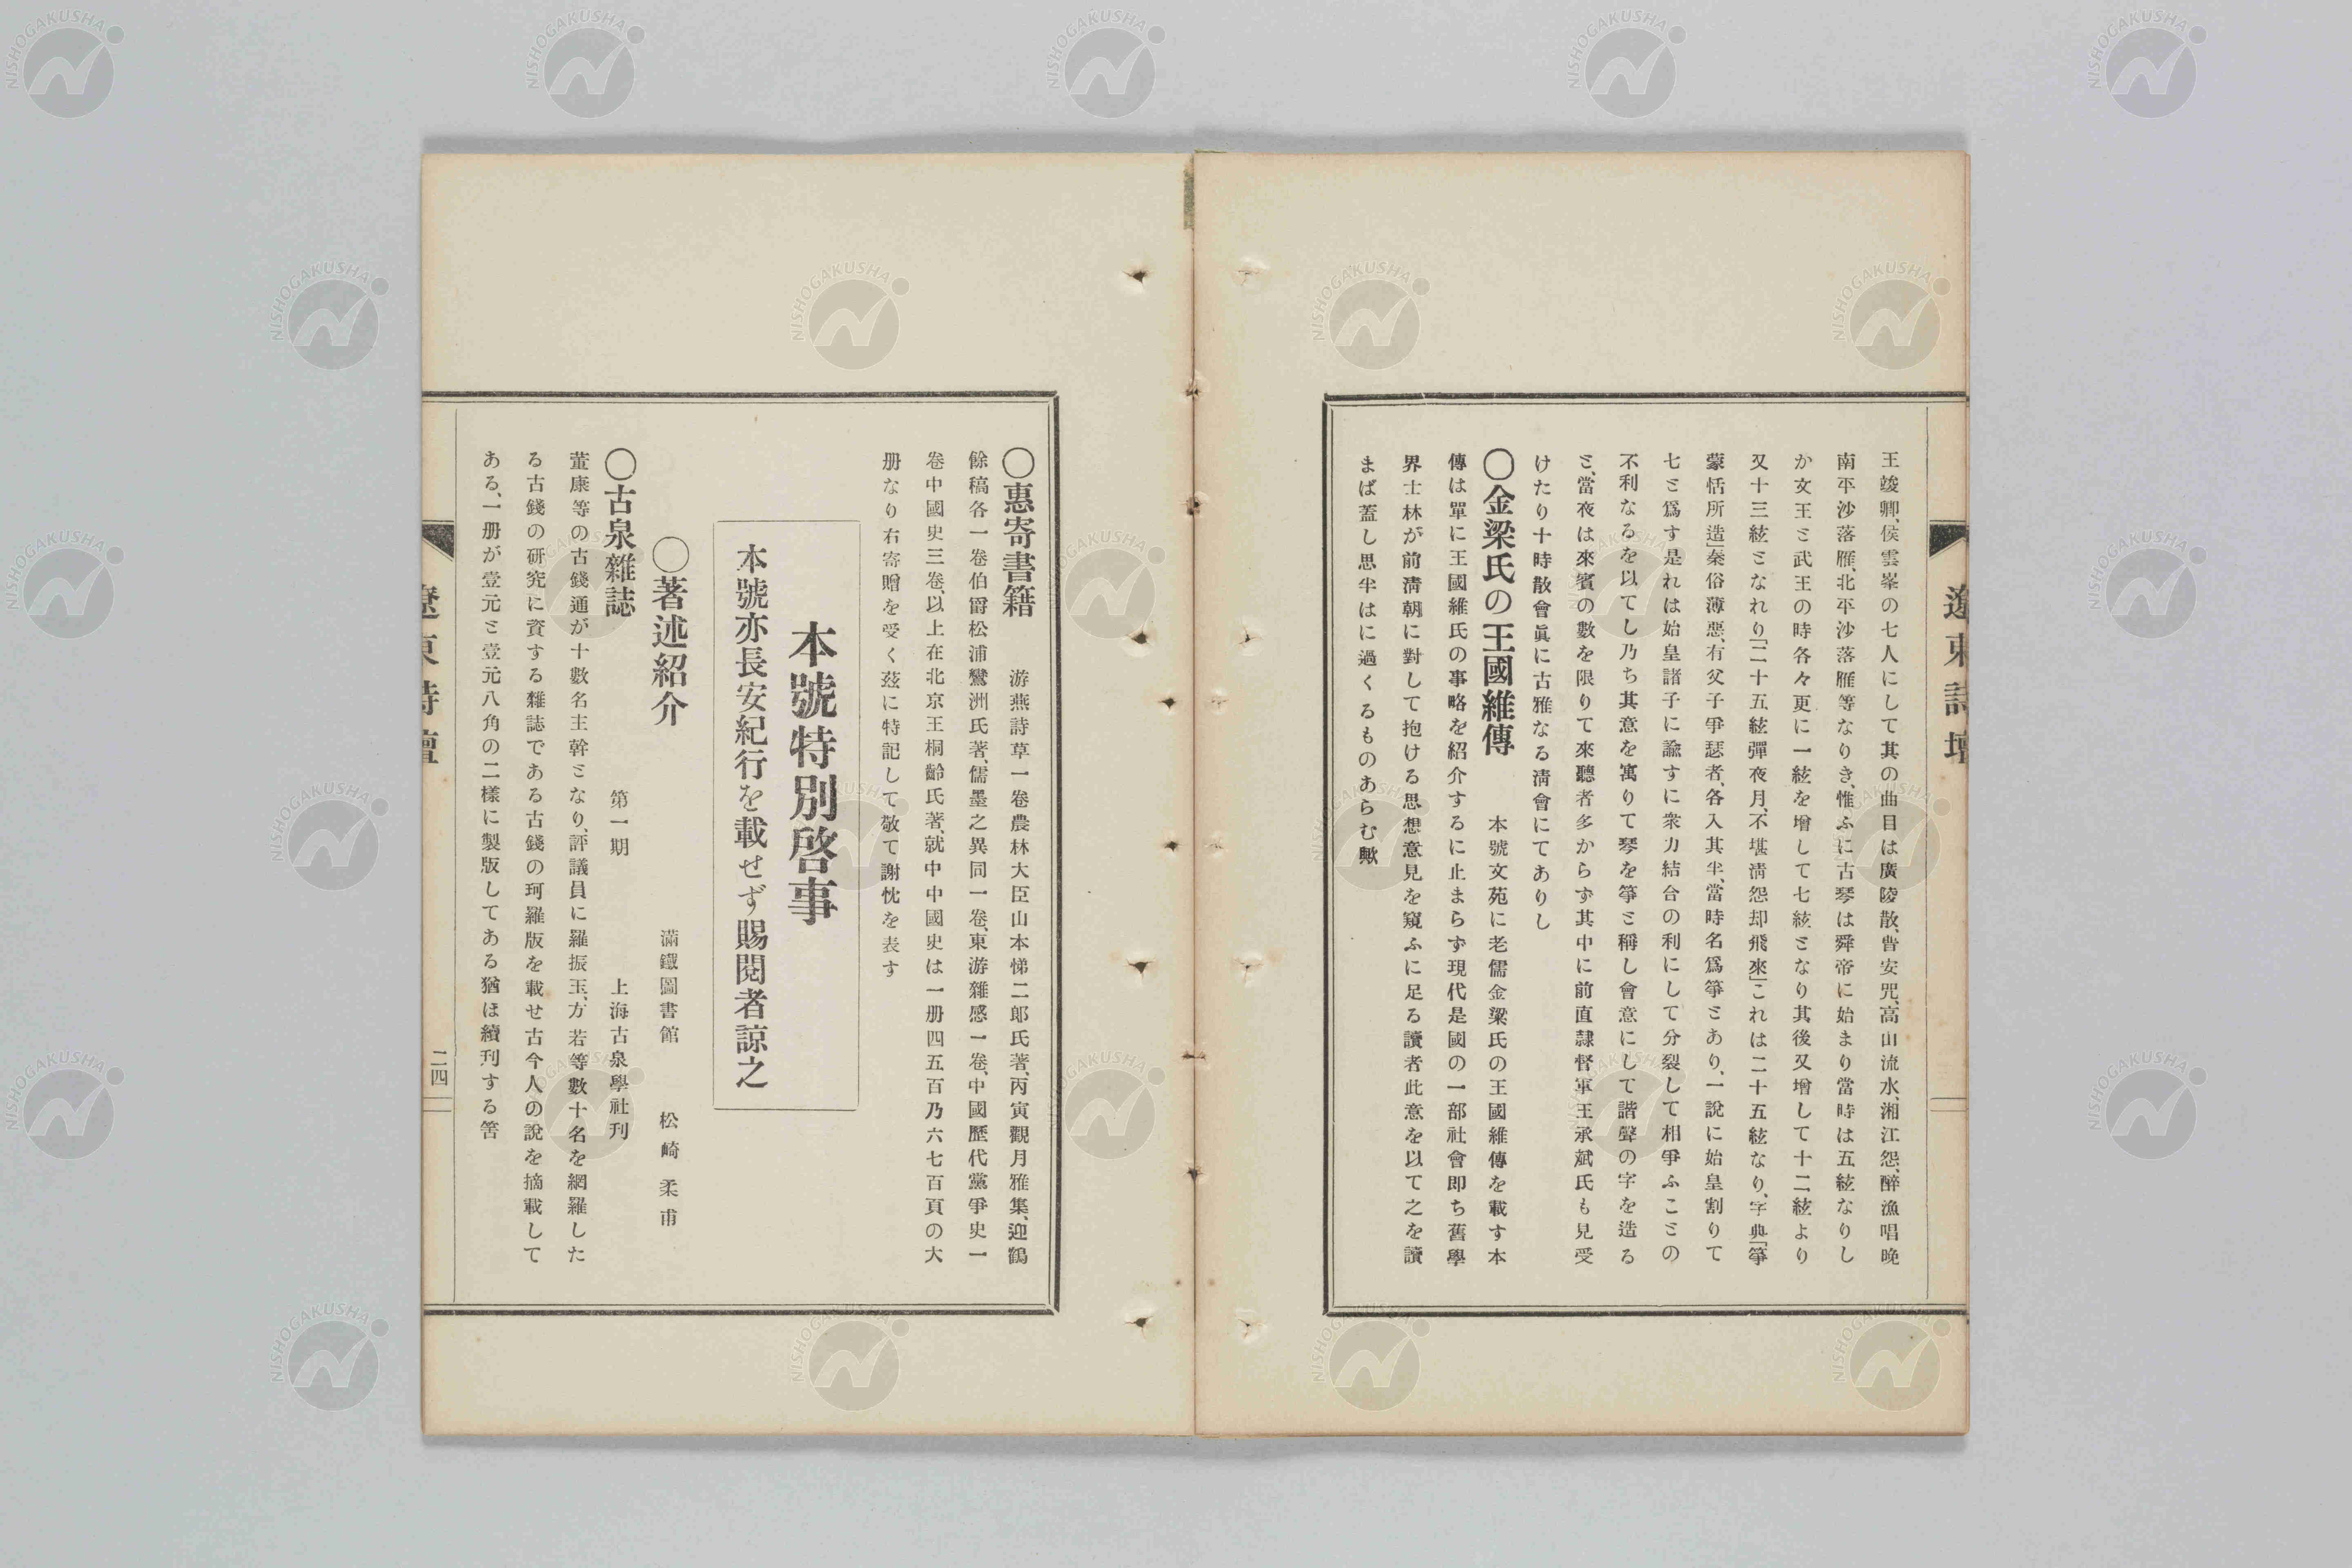 遼東詩壇
王竣卿、侯雲峯の七人にして其の曲目は廣陵散、普安咒、高山流水、湘江怨、醉漁唱晚
南平沙落雁、北平沙落雁等なりき、惟ふに古琴は舜帝に始まり當時は五絃なりし
か文王と武王の時各々更に一絃を增して七絃となり其後又增して十二絃より
又十三絃となれり「二十五絃彈夜月、不堪淸怨却飛來」これは二十五絃なり、字典「箏
蒙恬所造」秦俗薄惡、有父子爭瑟者、各入其半、當時名爲箏とあり、一說に始皇割りて
七と爲す是れは始皇諸子に諭すに衆力結合の利にして分裂して相爭ふことの
不利なるを以てし乃ち其意を寓りて琴を箏と稱し會意にして諧聲の字を造る
と、當夜は來賓の數を限りて來聽者多からず其中に前直隷督軍王承斌氏も見受
けたり十時散會眞に古雅なる淸會にてありし
〇金梁氏の王國維傳 本號文苑に老儒金梁氏の王國維傳を載す本
傳は單に王國維氏の事略を紹介するに止まらず現代是國の一部社會卽ち舊學
界士林が前淸朝に對して抱ける思想意見を窺ふに足る讀者此意を以て之を讀
まば蓋し思半はに過くるものあらむ歟
〇惠寄書籍 游燕詩草一卷農林大臣山本悌二郎氏著、丙寅觀月雅集、迎鶴
餘稿各一卷伯爵松浦鸞洲氏著、儒墨之異同一卷、東游雜感一卷、中國歷代黨爭史一
卷中國史三卷、以上在北京王桐齡氏著、就中中國史は一册四五百乃六七百頁の大
册なり右寄贈を受く玆に特記して敬て謝忱を表す
本號特別啓事
本號亦長安紀行を載せず賜閱者諒之
〇著述紹介 滿鐵圖書館 松崎柔甫
〇古泉雜誌 第一期 上海古泉學社刊
董康等の古錢通が十數名主幹となり、評議員に羅振玉、方若等數十名を網羅した
る古錢の硏究に資する雜誌である古錢の珂羅版を載せ古今人の說を摘載して
ある、一册が壹元と壹元八角の二樣に製版してある猶ほ續刊する筈
遼東詩壇
二四
NISHOGAKUSHA